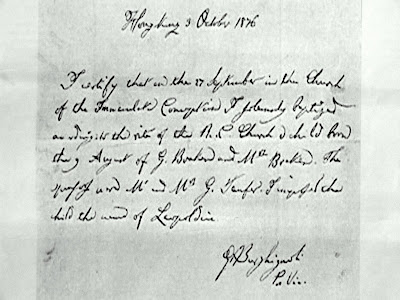 Hongkong 3 October 1876
I certify that on the 17 September in the Church
of the Immaculate Conception I solemnly baptized
according to the rite of the R. C. Church a child born
the 9 August of G. Bonker and Mrs Bonker. The
were Mr and Mrs G. I the
child the name of Leopoldine
Pro Vic.